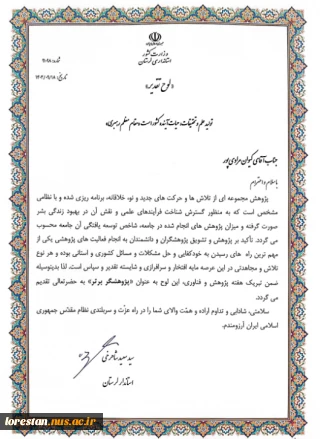 وزارت کشور
استانداری لرستان
شماره:
تاریخ:
«لوح تقدیر»
تولید علم و تحقیقات، حیات آینده کشور است «مقام معظم رهبری»
جناب آقای کیوان مرادی پور
با سلام و احترام
پژوهش مجموعه ای از تلاش ها و حرکت های جدید و نو، خلاقانه، برنامه ریزی شده و با نظامی
مشخص است که به منظور گسترش شناخت فرآیندهای علمی و نقش آن در بهبود زندگی بشر
صورت گرفته و میزان پژوهش های انجام شده در جامعه، شاخص توسعه یافتگی آن جامعه محسوب
می گردد. تأکید بر پژوهش و تشویق پژوهشگران و دانشمندان به انجام فعالیت های پژوهشی یکی از
مهم ترین راه های رسیدن به خودکفایی و حل مشکلات و مسائل کشوری و استانی بوده و هر نوع
تلاش و مجاهدتی در این عرصه مایه افتخار و سرافرازی و شایسته تقدیر و سپاس است. لذا بدینوسیله
ضمن تبریک هفته پژوهش و فناوری، این لوح به عنوان «پژوهشگر برتر» به حضرتعالی تقدیم
می گردد.
سلامتی، شادابی و تداوم اراده و همّت والای شما را در راه عزّت و سربلندی نظام مقدّس جمهوری
اسلامی ایران آرزومندم.
سید سعید شاهرخی
استاندار لرستان
lorestan.nus.ac.ir